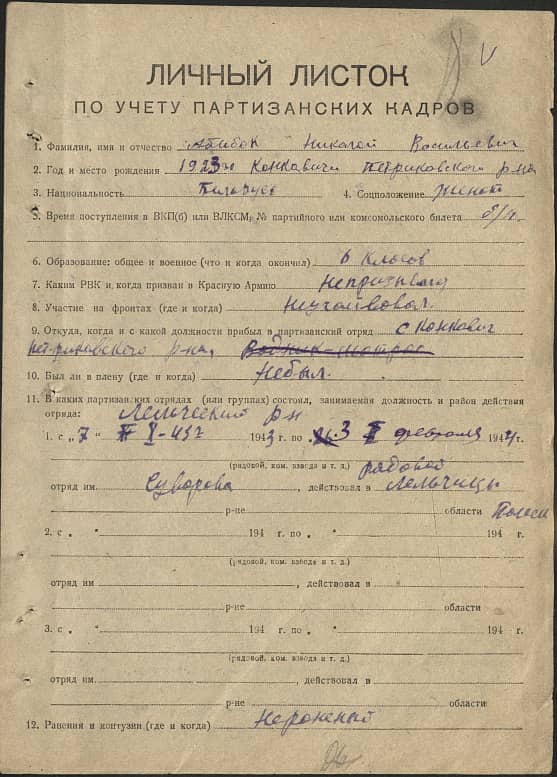 ЛИЧНЫЙ ЛИСТОК
ПО УЧЕТУ ПАРТИЗАНСКИХ КАДРОВ
1. Фамилия, имя и отчество Абибок Николай Васильевич
2. Год и место рождения 1923 Конковичи Петриковского р-на
3. Национальность 4. Соцположение
5. Время поступления в ВКП(б) или ВЛКСМ, № партийного или комсомольского билета б/п.
6. Образование: общее и военное (что и когда окончил) 6 класов
7. Каким РВК и когда призван в Красную Армию
8. Участие на фронтах (где и когда)
9. Откуда, когда и с какой должности прибыл в партизанский отряд с Конкович
Петриковского р-на,
10. Был ли в плену (где и когда) Небыл.
11. В каких партизанских отрядах (или группах) состоял, занимаемая должность и район действия
отряда: Лельческий р-н
1. с „7 “ 1943 г. по 3 февраля 1944 г.
рядовой
(рядовой, ком. взвода и т. д.)
отряд им. Суворова, действовал в Лельчицы
р-не области Полес
2. с „ “ 194 г. по „ “ 194 г.
(рядовой, ком. взвода и т. д.)
отряд им , действовал в
р-не области
3. с „ “ 194 г. по „ “ 194 г.
(рядовой, ком. взвода и т. д.)
отряд им. , действовал в
р-не области
12. Ранения и контузии (где и когда) Нероненый